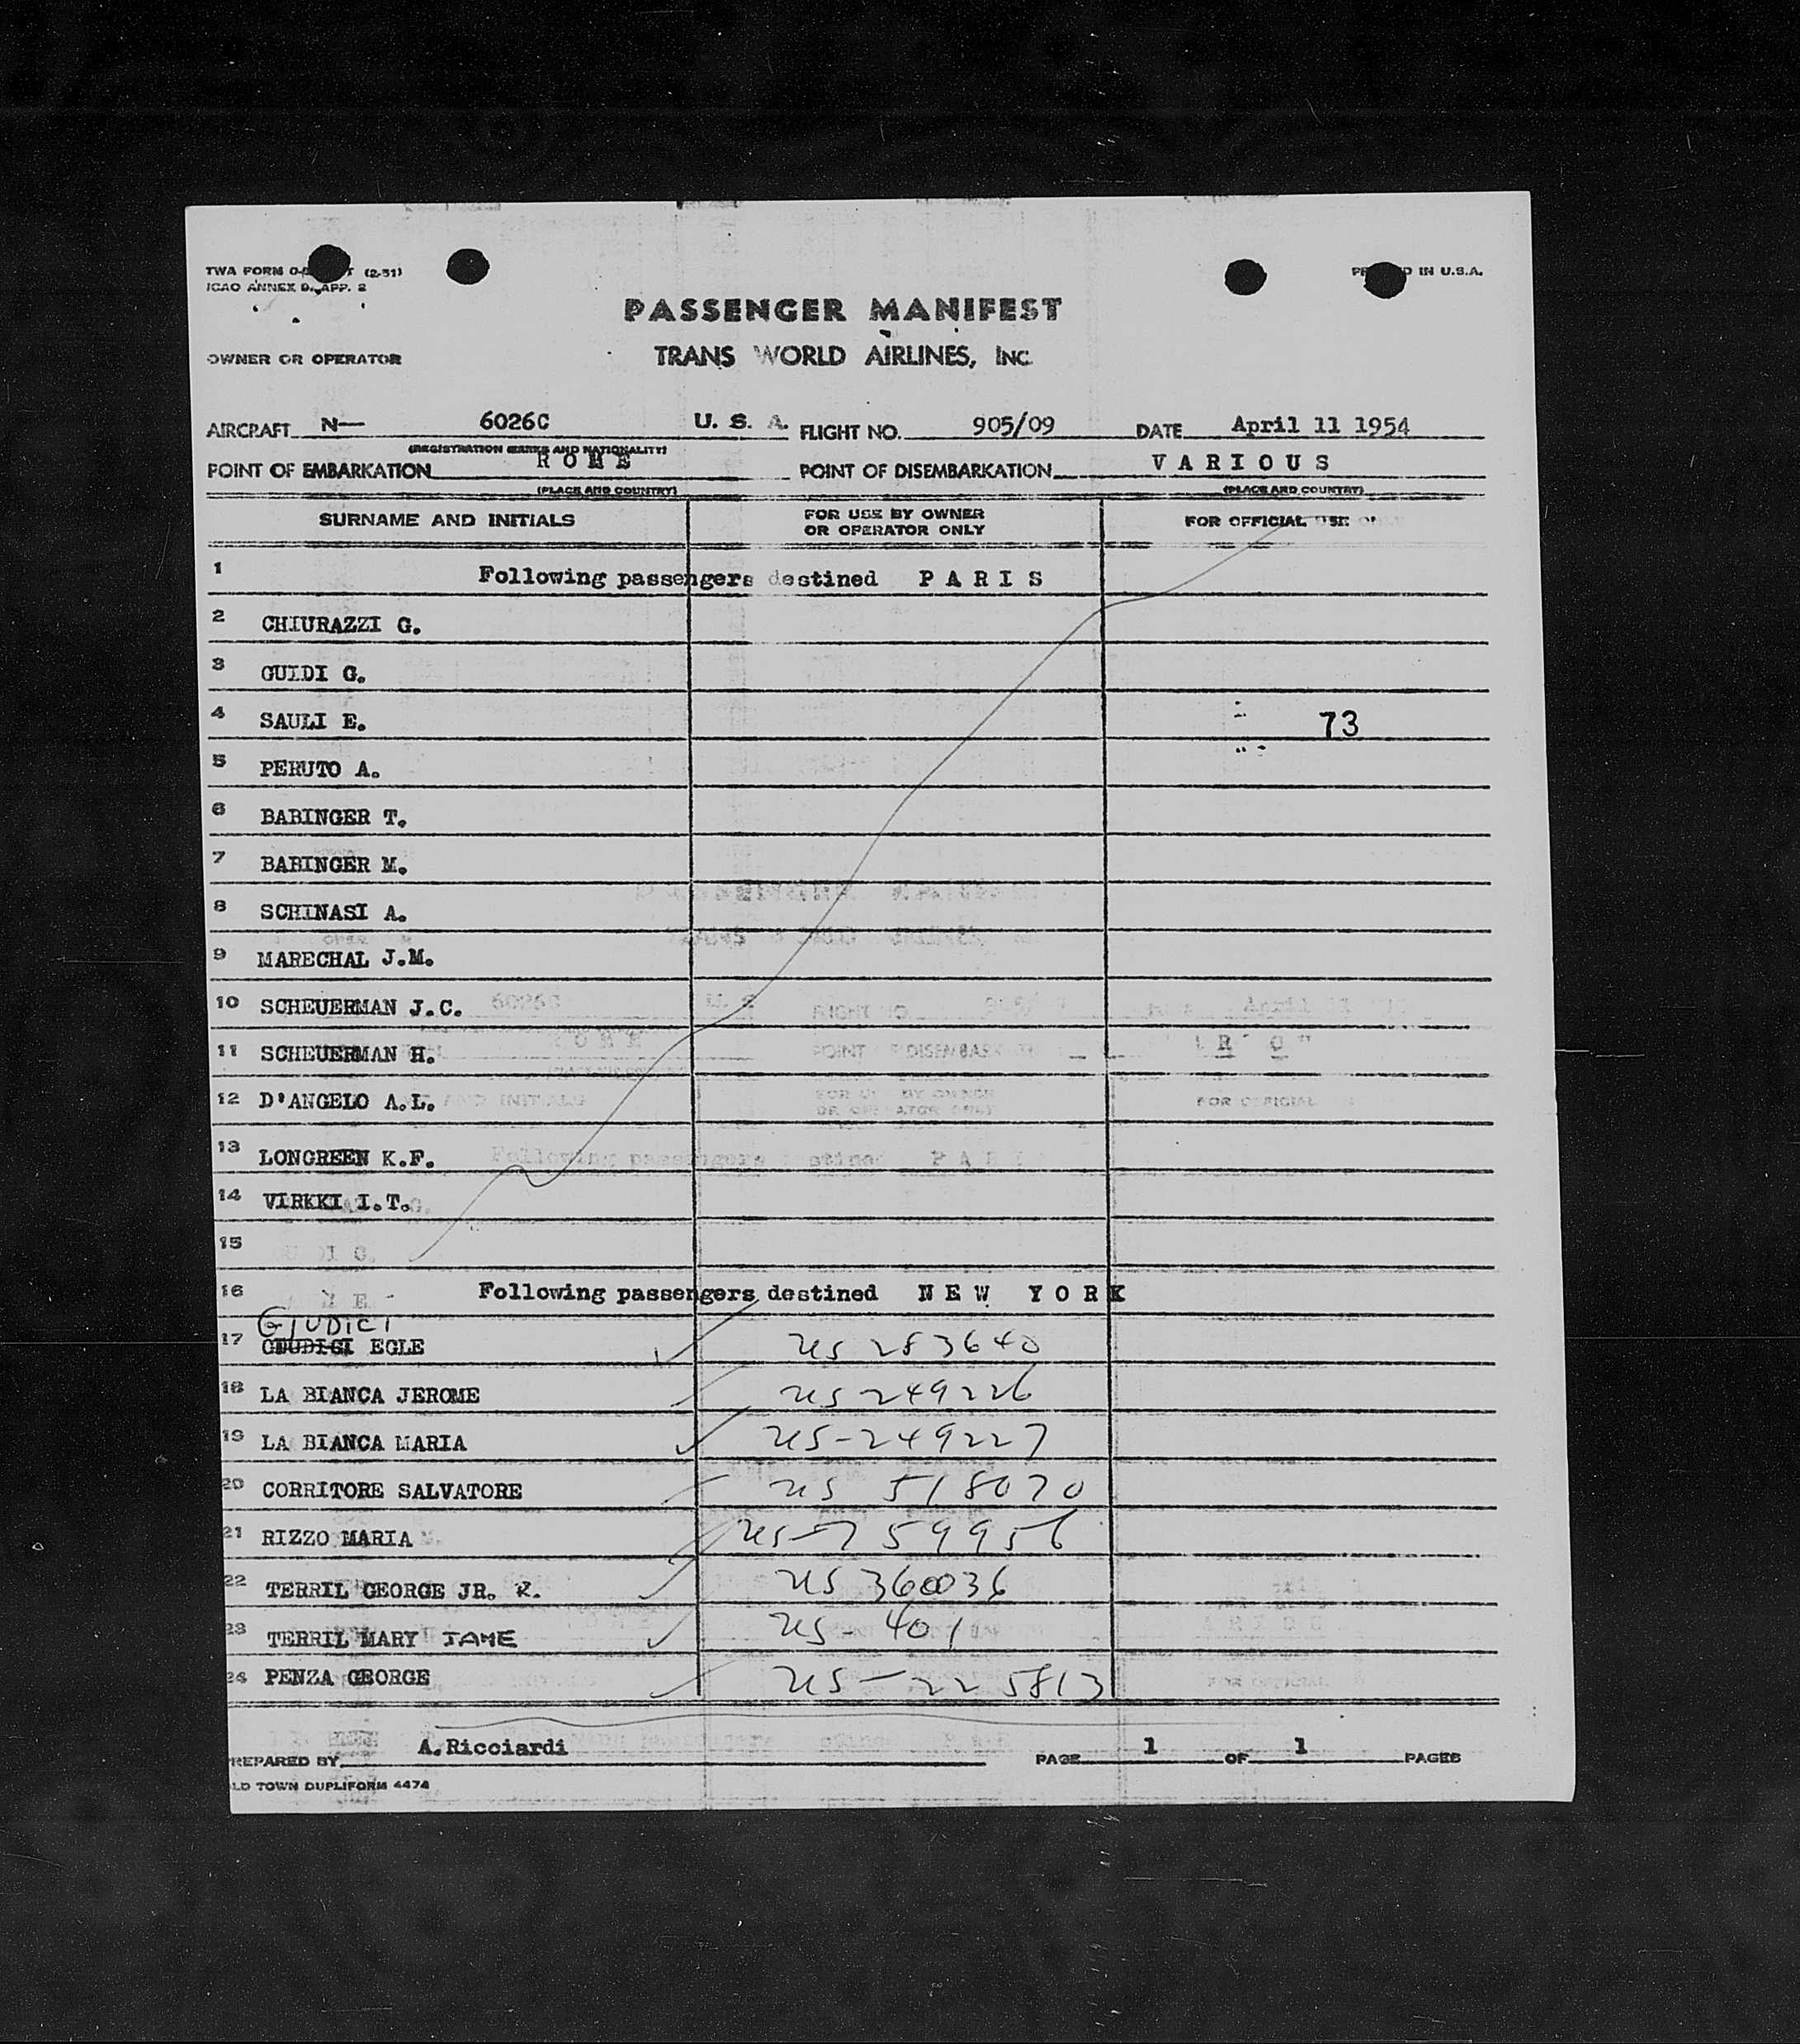 TWA FORM (2-51)
PRINTED IN U.S.A.
ICAO ANNEX 9, APP. 2
PASSENGER MANIFEST
OWNER OR OPERATOR TRANS WORLD AIRLINES, INC.
AIRCRAFT N— 6026C U. S. A. FLIGHT NO. 905/09 DATE April 11 1954
(REGISTRATION MARKS AND NATIONALITY)
POINT OF EMBARKATION R O M E POINT OF DISEMBARKATION V A R I O U S
(PLACE AND COUNTRY) (PLACE AND COUNTRY)
SURNAME AND INITIALS FOR USE BY OWNER OR OPERATOR ONLY FOR OFFICIAL USE ONLY
1 Following passengers destined P A R I S
2 CHIURAZZI G.
3 GUIDI G.
4 SAULI E. 73
5 PERUTO A.
6 BABINGER T.
7 BABINGER M.
8 SCHINASI A.
9 MARECHAL J.M.
10 SCHEUERMAN J.C.
11 SCHEUERMAN H.
12 D'ANGELO A.L.
13 LONGREEN K.F.
14 VIRKKI I.T.
15
16 Following passengers destined N E W Y O R K
GIUDICI
17 EGLE US 283640
18 LA BIANCA JEROME US-249226
19 LA BIANCA MARIA US-249227
20 CORRITORE SALVATORE US 518070
21 RIZZO MARIA US-759956
22 TERRIL GEORGE JR. R. US 360036
23 TERRIL MARY JANE US- 401
24 PENZA GEORGE US-225813
PREPARED BY A.Ricciardi PAGE 1 OF 1 PAGES
OLD TOWN DUPLIFORM 4474